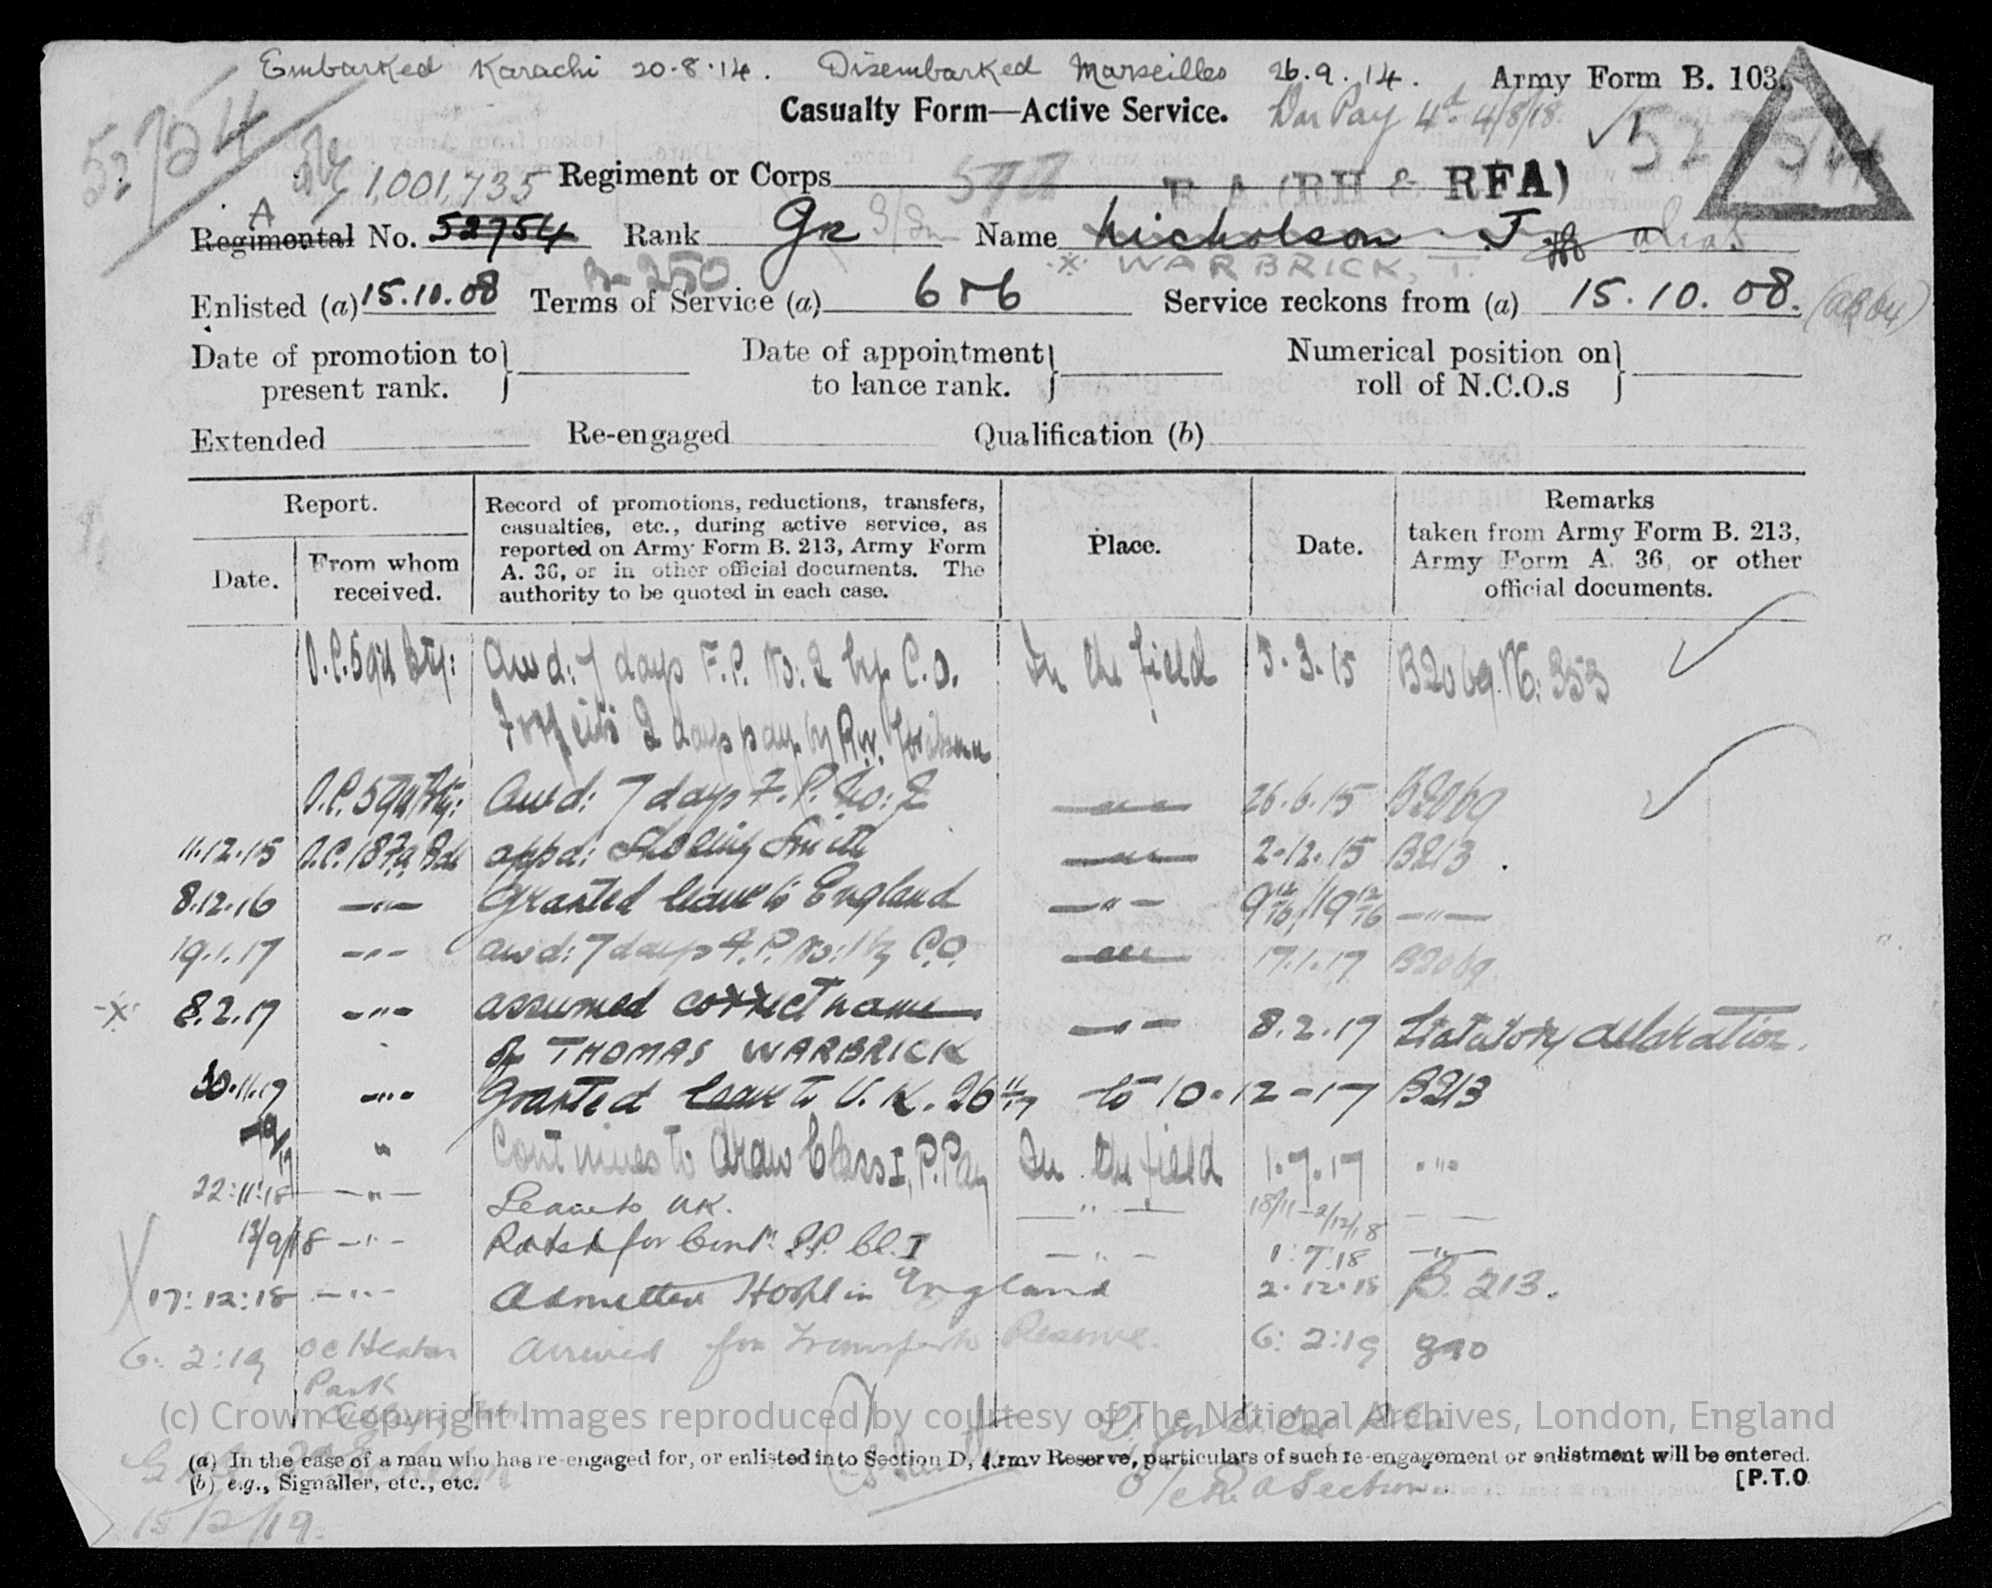 Embarked Karachi 20-8-14. Disembarked Marseilles 26.9.14. Army Form B. 103.
Casualty Form—Active Service. War Pay 4d 4/8/18
52754
1,001,735 Regiment or Corps R A (RH & RFA)
A
Regimental No. 52754 Rank Gr Name Nicholson J alias
* WARBRICK, T.
Enlisted (a) 15.10.08 Terms of Service (a) 6 & 6 Service reckons from (a) 15.10.08.
Date of promotion to present rank. Date of appointment to lance rank. Numerical position on roll of N.C.O.s
Extended Re-engaged Qualification (b)
Report.
Date. From whom received.
Record of promotions, reductions, transfers, casualties, etc., during active service, as reported on Army Form B. 213, Army Form A. 36, or in other official documents. The authority to be quoted in each case.
Place.
Date.
Remarks taken from Army Form B. 213, Army Form A. 36, or other official documents.
O.C. 59th Bty: Awd: 7 days F.P. No: 2 by C.O. In the field 5.3.15 B2069 No: 353
Forfeits 2 days pay by R.W.
O.C. 59th Bty: Awd: 7 days F.P. No: 2 26.6.15 B2069
11.12.15 O.C. 18 Fa Bde appd: Shoeing Smith 2.12.15 B213.
8.12.16 —"— Granted leave to England —"— 9 12/16 / 19 12/16 —"—
19.1.17 —"— awd: 7 days F.P. No: 1 by C.O. 17.1.17 B2069
-X- 8.2.17 —"— assumed correct name —"— 8.2.17 Statutory declaration.
of THOMAS WARBRICK
30.11.17 —"— Granted leave to U.K. 26 11/17 to 10-12-17 B213
" Continues to draw Class I, P. Pay In the field 1.7.17 "
22:11:18 —"— Leave to UK. —"— 18/11–2/12/18 — —
13/9/18 —"— for Cont. P.P. Cl. I —"— 1:7.18 —"—
17:12:18 —"— Admitted Hospl in England 2.12.18 B. 213.
6:2:19 OC Heaton Park Arrived for Transfer to Reserve. 6:2:19
(c) Crown Copyright Images reproduced by courtesy of The National Archives, London, England
(a) In the case of a man who has re-engaged for, or enlisted into Section D, Army Reserve, particulars of such re-engagement or enlistment will be entered.
(b) e.g., Signaller, etc., etc. [P.T.O
15/2/19. Section